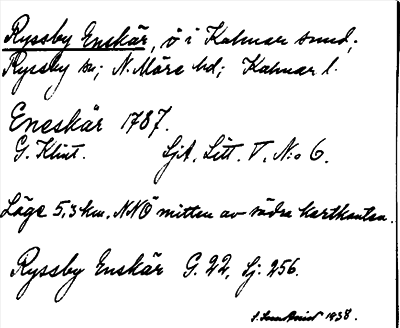 Ryssby Enskär, ö i Kalmar sund;
Ryssby sn; N. Möre hd; Kalmar l.
Eneskär 1787.
G. Klint. SjA, Litt. V, N:o 6.
Läge 5,3 km. NNÖ mitten av södra kartkanten.
Ryssby Enskär G. 22, Sj. 256.
1938.